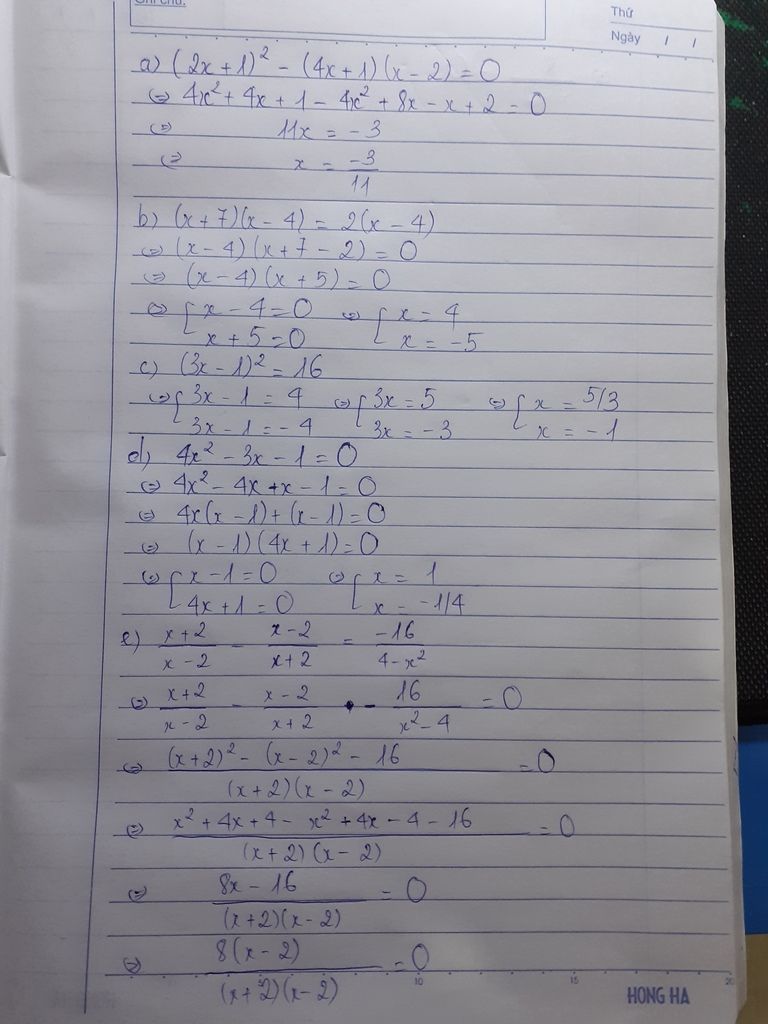 Ghi chú:
Thứ
Ngày / /
a) (2x+1)² - (4x+1)(x-2) = 0
⇔ 4x² + 4x + 1 - 4x² + 8x - x + 2 = 0
⇔ 11x = -3
⇔ x = -3/11
b) (x+7)(x-4) = 2(x-4)
⇔ (x-4)(x+7-2) = 0
⇔ (x-4)(x+5) = 0
⇔ { x-4=0 ⇔ { x = 4
x+5=0 x = -5
c) (3x-1)² = 16
⇔ { 3x-1 = 4 ⇔ { 3x = 5 ⇔ { x = 5/3
3x-1 = -4 3x = -3 x = -1
d) 4x² - 3x - 1 = 0
⇔ 4x² - 4x + x - 1 = 0
⇔ 4x(x-1) + (x-1) = 0
⇔ (x-1)(4x+1) = 0
⇔ { x-1 = 0 ⇔ { x = 1
4x+1 = 0 x = -1/4
e) (x+2)/(x-2) - (x-2)/(x+2) = -16/(4-x²)
⇔ (x+2)/(x-2) - (x-2)/(x+2) - 16/(x²-4) = 0
⇔ ((x+2)² - (x-2)² - 16)/((x+2)(x-2)) = 0
⇔ (x² + 4x + 4 - x² + 4x - 4 - 16)/((x+2)(x-2)) = 0
⇔ (8x - 16)/((x+2)(x-2)) = 0
⇔ (8(x-2))/((x+2)(x-2)) = 0
5 10 15 20
HONG HA